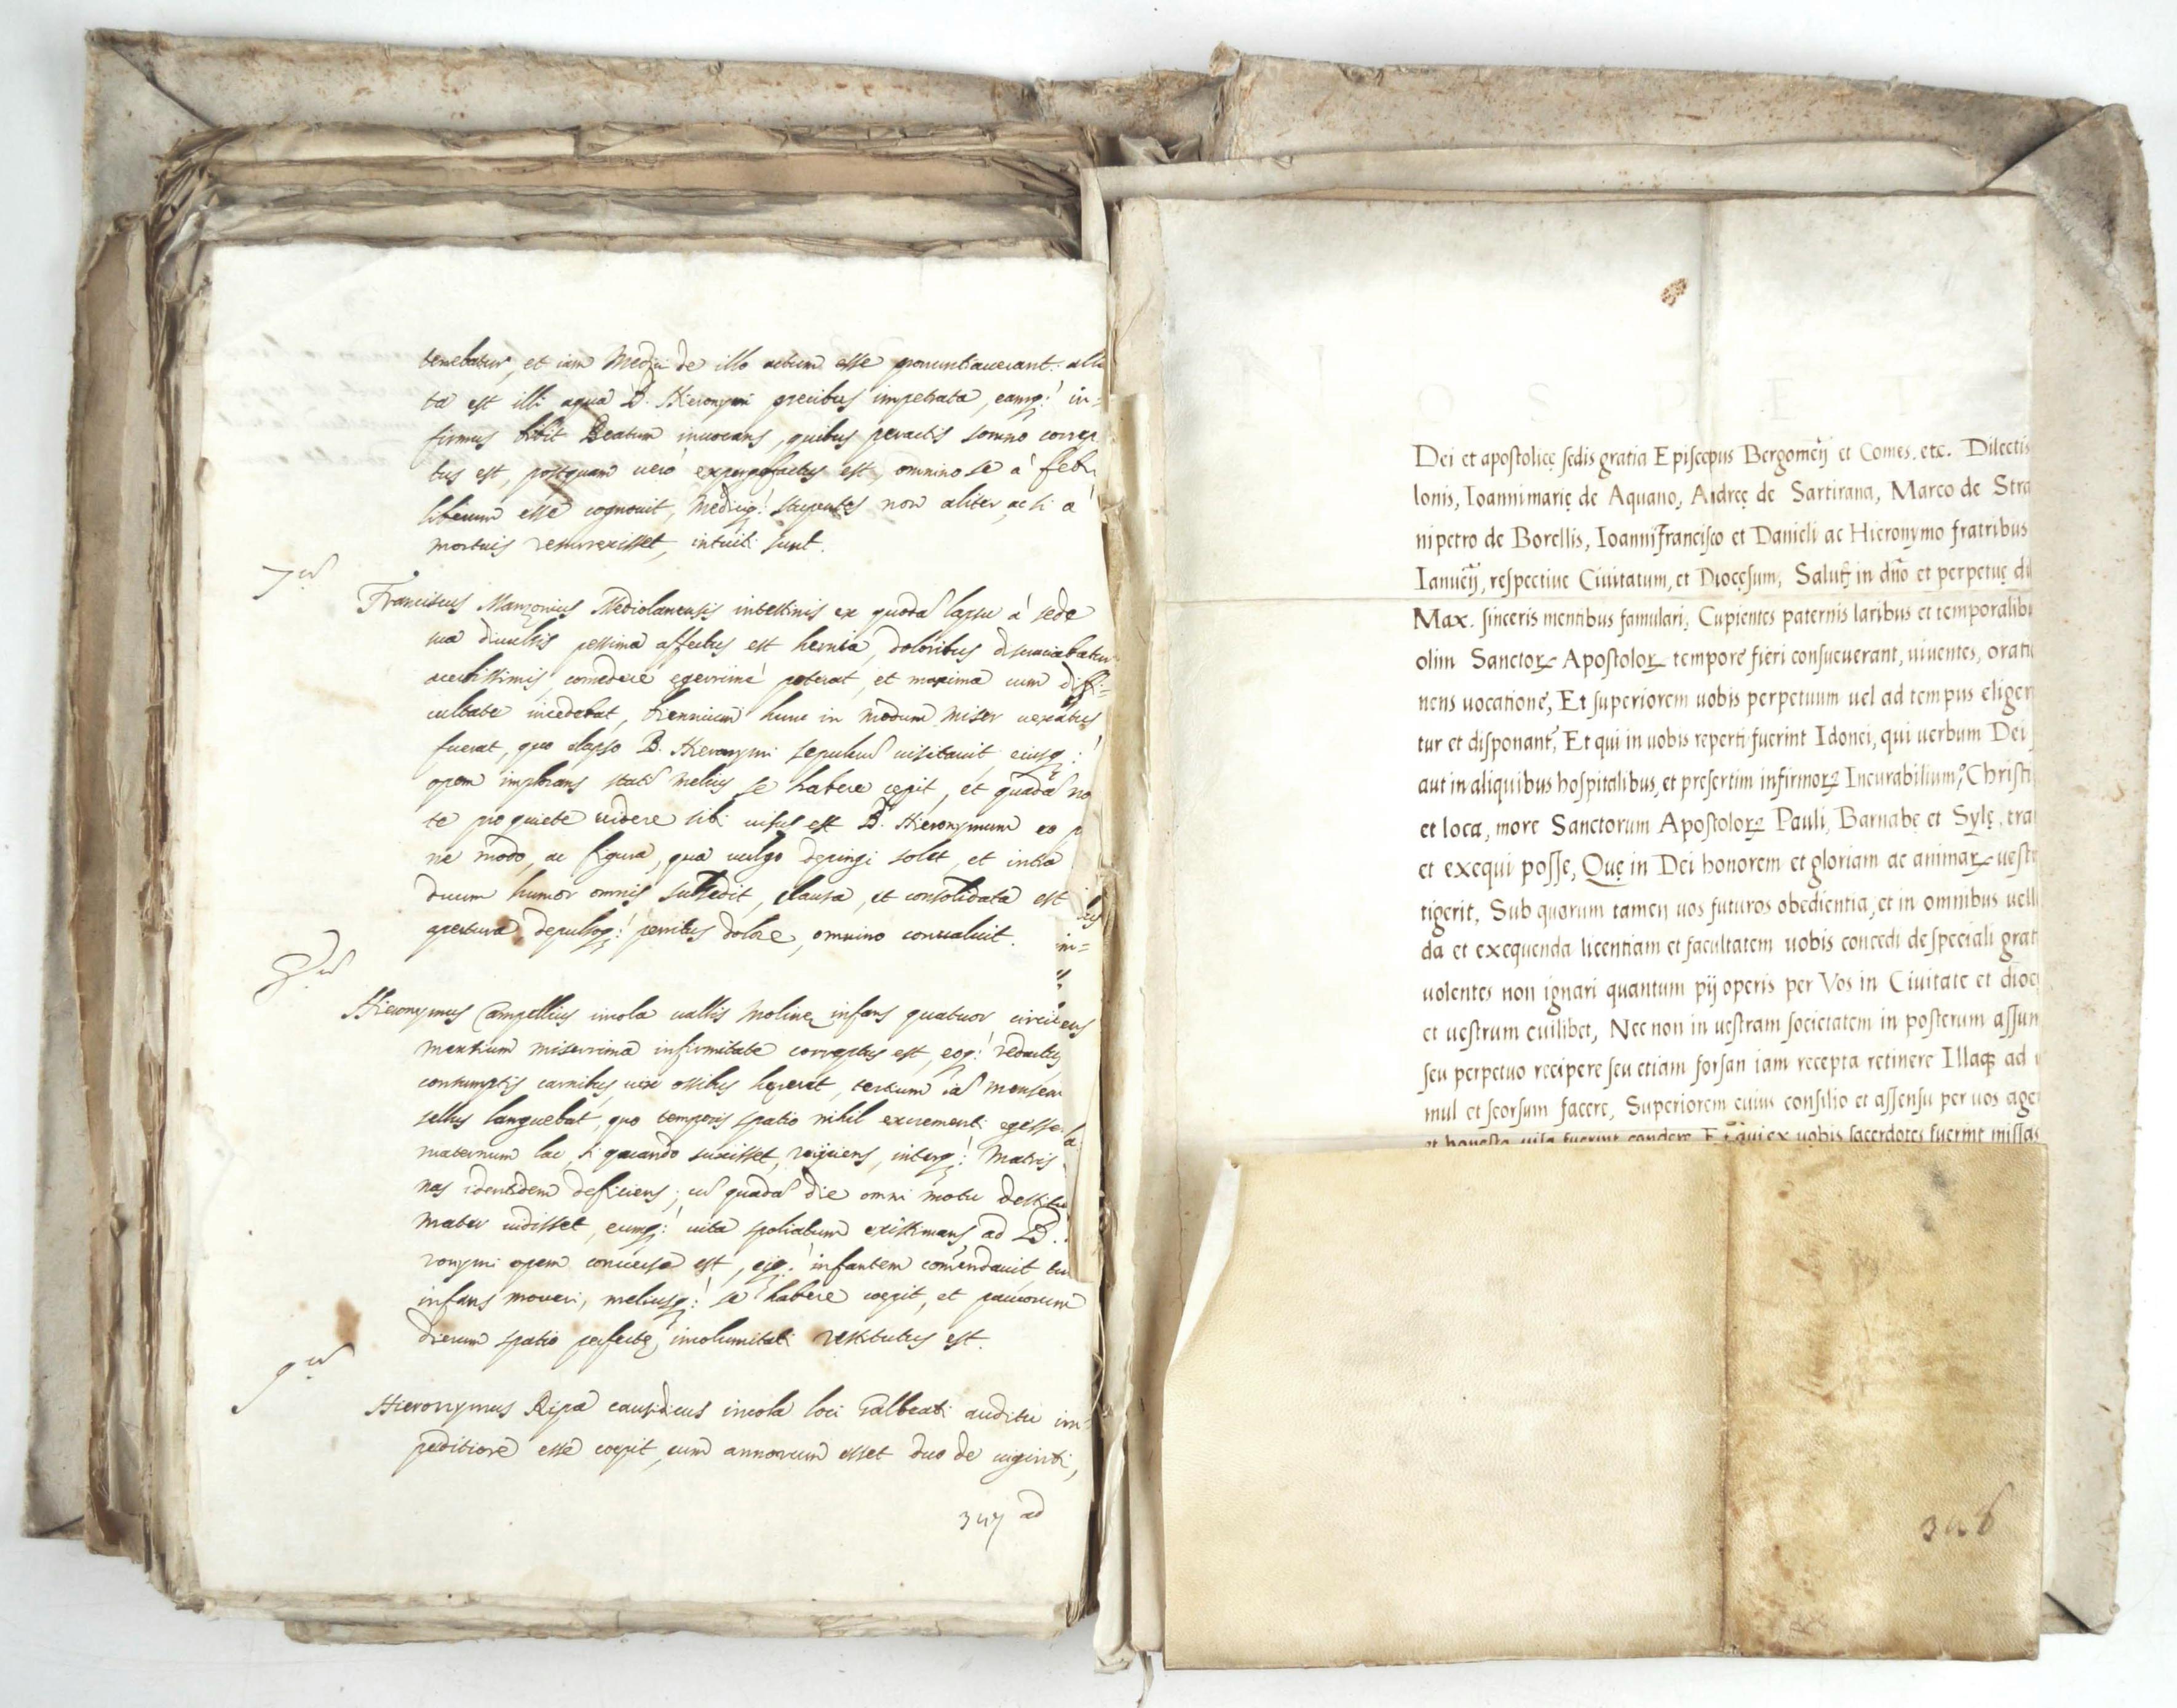 tenebatur, et iam Medici de illo actum esse pronuntiauerant: alla
ta est illi aqua B. Hieronymi precibus impetrata, eamq; in=
firmus bibit Beatum inuocans, quibus peractis somno correp
tus est, postquam uero experrefactus est, omnino se à febri
liberum esse cognouit, Mediciq; stupentes non aliter, ac si à
mortuis resurrexisset, intuiti sunt.
7.us
Franciscus Manzonius Mediolanensis intestinis ex quodã lapsu à sede
sua diuulsis pessima affectus est hernia, doloribus discruciabatur
acerbissimis, comedere egerrimè poterat, et maxima cum diffi=
cultate incedebat, triennium hunc in modum miser uexatus
fuerat, quo elapso B. Hieronymi sepulcrũ uisitauit, eiusq;
opem implorans statĩ melius se habere cepit, et quadã no
te pro quiete uidere sibi uisus est B. Hieronymum eo
ne modo, ac figura, qua uulgo depingi solet, et intra
duum humor omnis subsedit, clausa, et consolidata est
apertura, depulsoq; penitus dolore, omnino conualuit.
in=
8.us
Hieronymus Campellius incola uallis Molinę infans quatuor circiter
mensium miserrima infirmitate correptus est, eoq; redactus
consumptis carnibus, uix ossibus hęreret, tertium iã mensem
languebat, quo temporis spatio nihil excrementi egesse
maternum lac, si quando suxisset, reijciens, interq; Matris
nas identidem deficiens; cũ quadã die omni motu destitu
Mater uidisset, eumq; uita spoliatum existimans, ad B.
ronymi opem conuersa est, eiq; infantem comendauit
infans moueri, meliusq; se habere coepit, et paucorum
dierum spatio perfectę incolumitati restitutus est.
9.us
Hieronymus Ripa causidicus incola loci Galbeati auditu im=
peditiore esse coepit, cum annorum esset duo de uiginti,
347 ad
Dei et apostolicę sedis gratia Episcopus Bergomẽn et Comes. etc. Dilectis
lonis, Ioannimarię de Aquano, Andreę de Sartirana, Marco de Stra
nipetro de Borellis, Ioannifrancisco et Danieli ac Hieronymo fratribus
Ianuẽn, respectiue Ciuitatum, et Diocęsum, Salutẽ in dño et perpetuę di
Max. sinceris mentibus famulari, Cupientes paternis laribus et temporalibu
olim Sanctoꝝ Apostoloꝝ tempore fieri consueuerant, uiuentes, orati
nens uocatione, Et superiorem uobis perpetuum uel ad tempus eligen
tur et disponant, Et qui in uobis reperti fuerint Idonei, qui uerbum Dei
aut in aliquibus hospitalibus, et presertim infirmoꝝ Incurabilium, Christi
et loca, more Sanctorum Apostoloꝝ Pauli, Barnabę et Sylę, tra
et exequi posse, Quę in Dei honorem et gloriam ac animaꝝ uestr
tigerit, Sub quorum tamen uos futuros obedientia, et in omnibus uell
da et exequenda licentiam et facultatem uobis concedi de speciali grati
uolentes non ignari quantum pij operis per Vos in Ciuitate et dioc
et uestrum cuilibet, Nec non in uestram societatem in posterum assum
seu perpetuo recipere seu etiam forsan iam recepta retinere Illaqꝫ ad
mul et seorsum facere, Superiorem cuius consilio et assensu per uos age
et honesta uisa fuerint condere, Et qui ex uobis sacerdotes fuerint missas
346